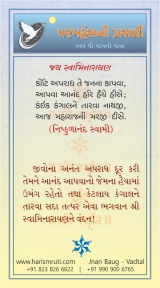 પરમહંસની પ્રસાદી
સ્વયં થી પરમની યાત્રા
જય સ્વામિનારાયણ
કોટિ અપરાધ તે જનના કાપવા,
આપવા આનંદ હરિ હૈયે હીસે;
કંઈક કંગાલને તારવા નાથજી,
આજ મહારાજની મરજી દીસે.
(નિષ્કુળાનંદ સ્વામી)
જીવોના અનંત અપરાધ દૂર કરી
તેમને આનંદ આપવાનો જેમના હૈયામાં
ઉમંગ રહેતો તથા કેટલાય કંગાલને
તારવા સદા તત્પર એવા ભગવાન શ્રી
સ્વામિનારાયણને વંદન!
www.harismruti.com
Jnan Baug - Vadtal
+91 823 826 6622
+91 990 900 6765